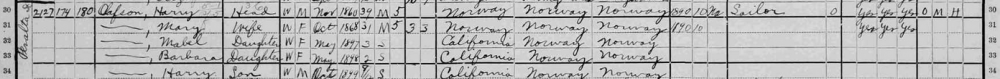 30 2127 174 180 Olifson, Harry Head W M Nov 1860 39 M 5 Norway Norway Norway 1890 10 Na Sailor 0 Yes Yes Yes O M H 30
31 ——, Mary Wife W F Oct 1868 31 M 5 3 3 Norway Norway Norway 1890 10 Yes Yes Yes 31
——, Mabel Daughter W F May 1897 3 S California Norway Norway 32
33 ——, Barbara Daughter W F May 1898 2 S California Norway Norway 33
34 ——, Harry Son W M Oct 1899 S California Norway Norway 34